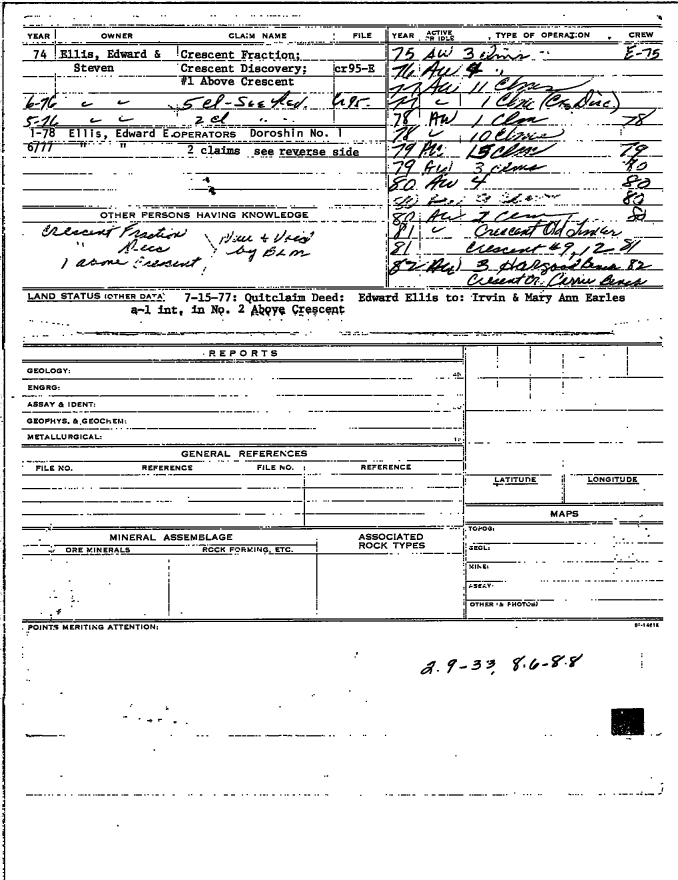 YEAR OWNER CLAIM NAME FILE
74 Ellis, Edward & Crescent Fraction;
Steven Crescent Discovery; cr95-E
#1 Above Crescent
6-76 " " 5 cl - See Red. cr95-
5-76 " " 2 cl "
1-78 Ellis, Edward E. OPERATORS Doroshin No. 1
6/77 " " 2 claims see reverse side
OTHER PERSONS HAVING KNOWLEDGE
Crescent Fraction
" Disc
1 above Crescent
Null & Void
by BLM
YEAR ACTIVE OR IDLE TYPE OF OPERATION CREW
75 AW 3 clms E-75
76 AW 4 "
77 AW 11 Clms
77 " 1 Clm (Cr. Disc)
78 AW 1 Clm 78
78 " 10 Clms
79 15 Clm 79
79 AW 3 clms 80
80 AW 4 80
80
80 AW 2 clm 80
81 " Crescent Old
81 Crescent #9, 12 81
82 AW 3 Bench 82
Crescent Cr. Bench
LAND STATUS (OTHER DATA) 7-15-77: Quitclaim Deed: Edward Ellis to: Irvin & Mary Ann Earles
a-1 int, in No. 2 Above Crescent
REPORTS
GEOLOGY:
ENGRG:
ASSAY & IDENT:
GEOPHYS. & GEOCHEM:
METALLURGICAL:
GENERAL REFERENCES
FILE NO. REFERENCE FILE NO. REFERENCE
LATITUDE LONGITUDE
MAPS
TOPOG:
GEOL:
MINE:
ASSAY:
OTHER (& PHOTOS)
MINERAL ASSEMBLAGE
ORE MINERALS ROCK FORMING, ETC.
ASSOCIATED
ROCK TYPES
POINTS MERITING ATTENTION:
2.9-33, 8.6-8.8